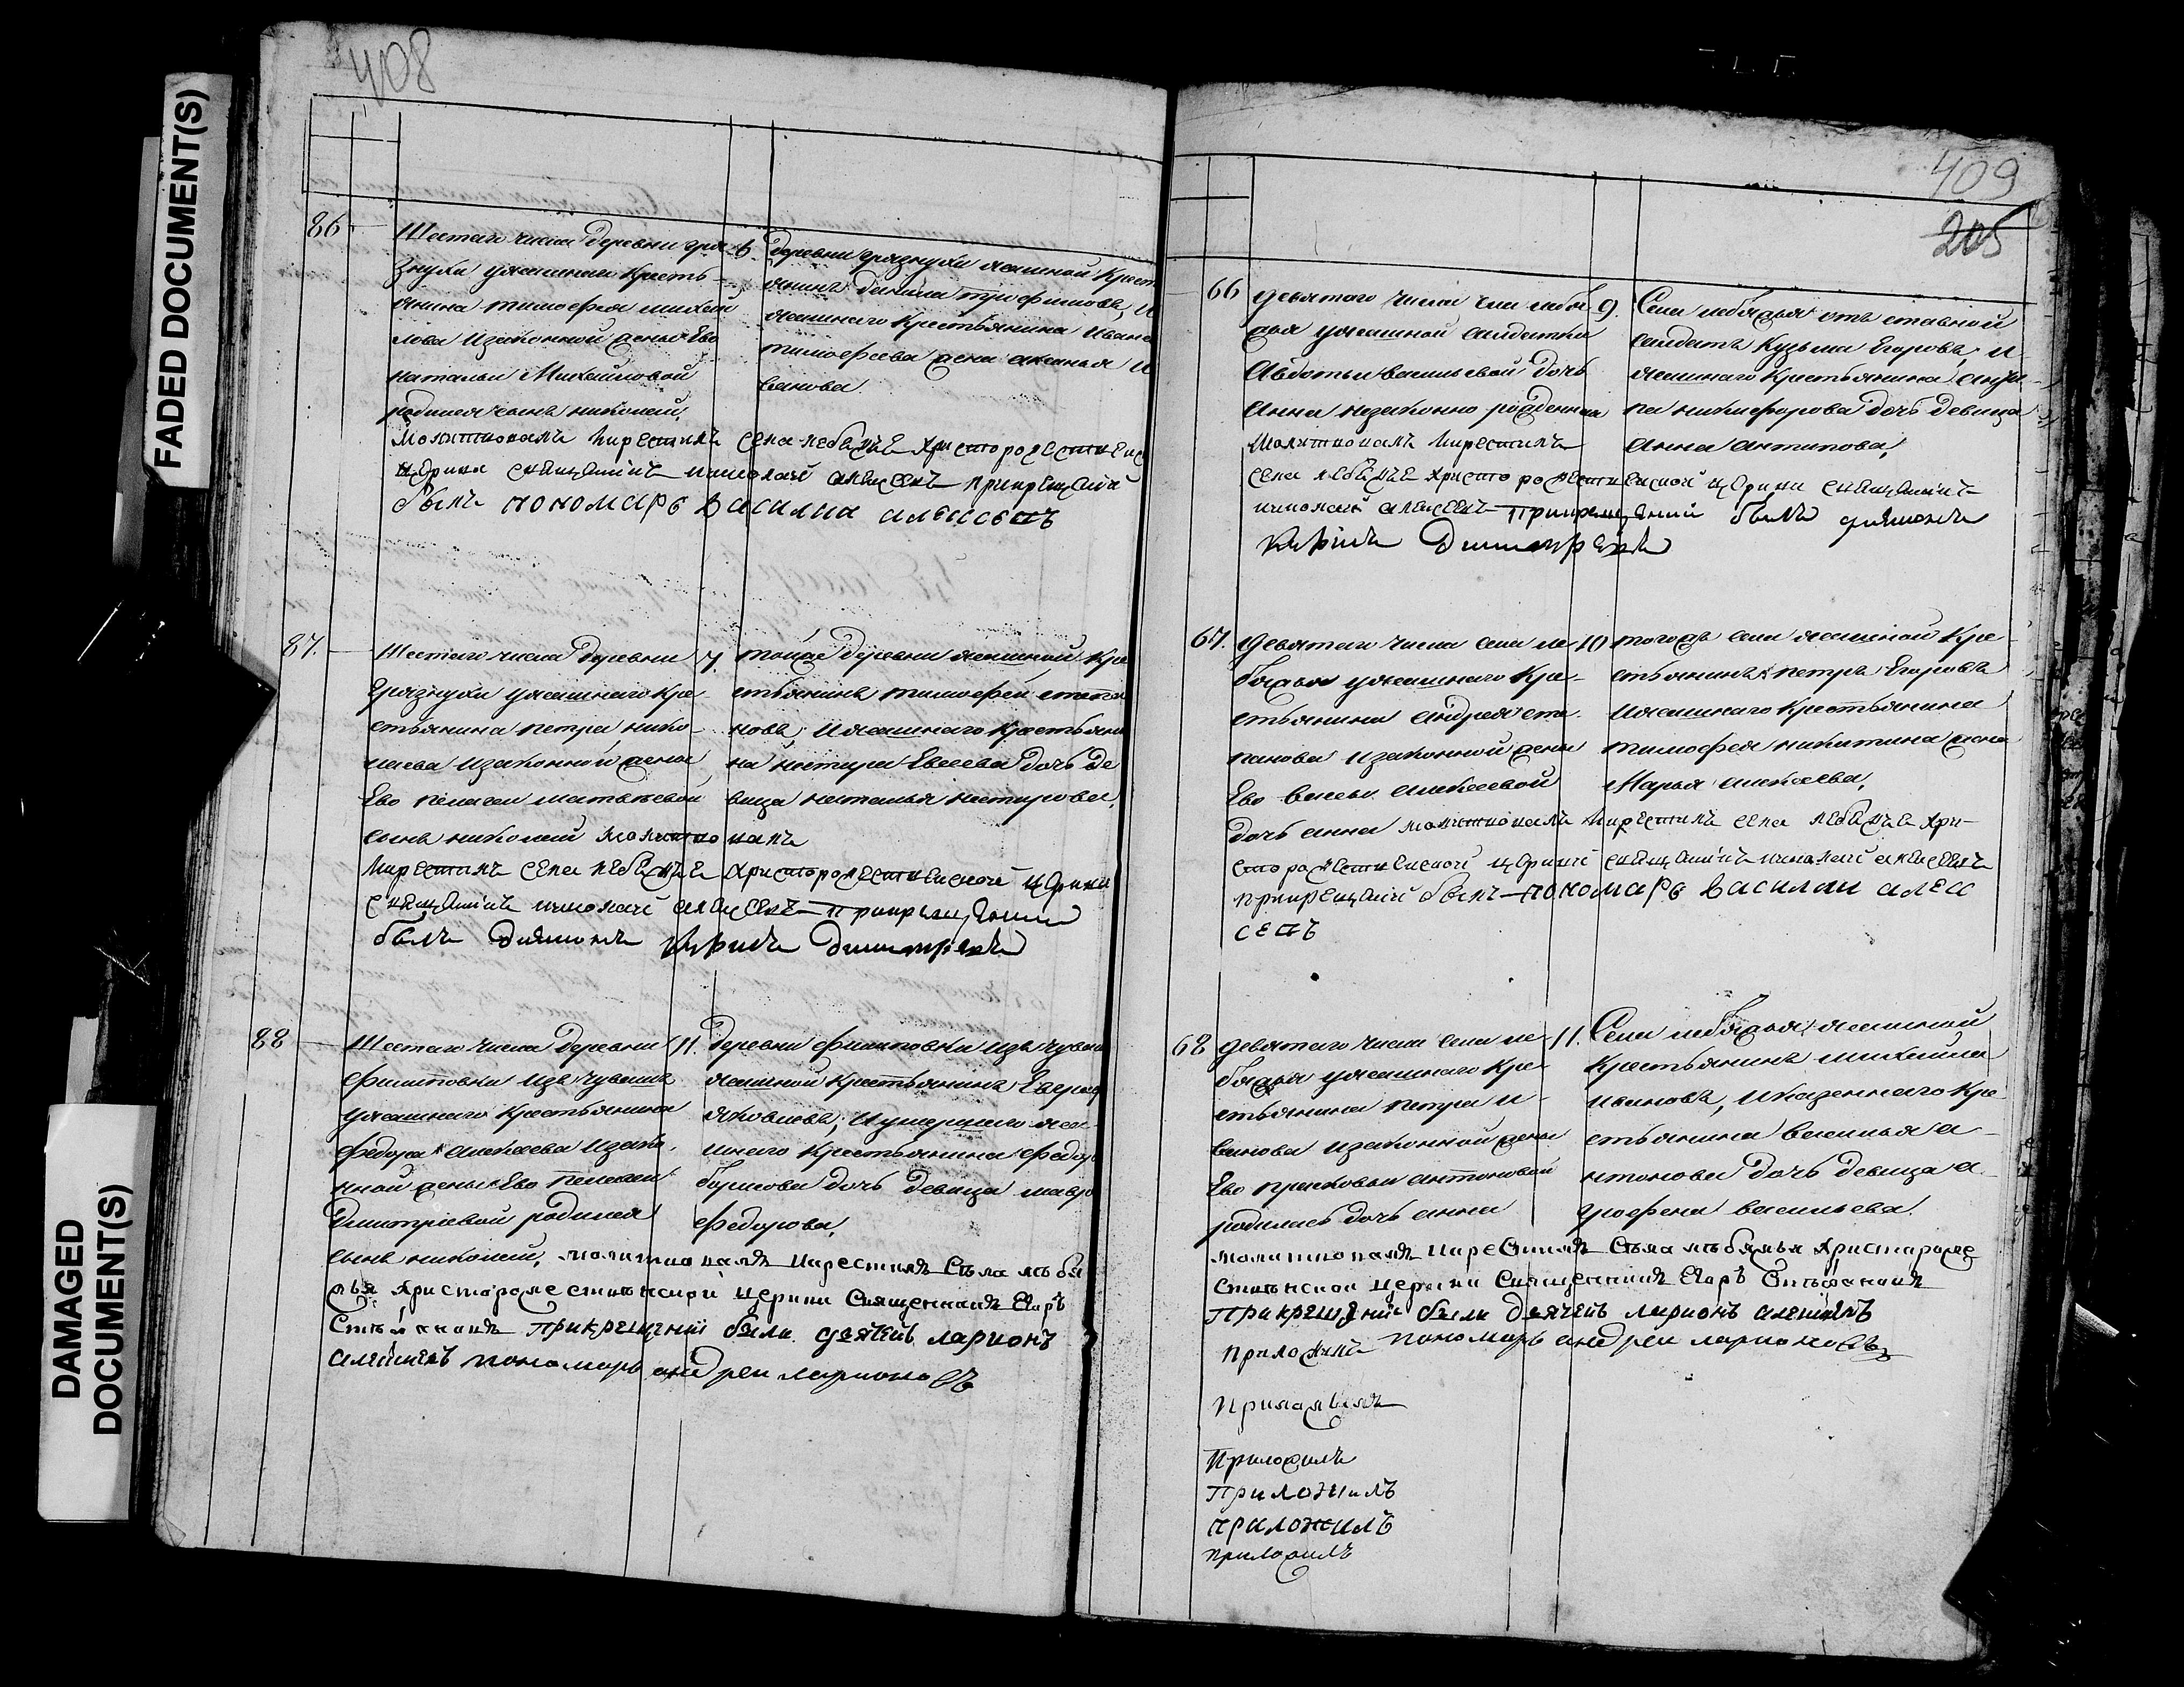 408
FADED DOCUMENT(S)
DAMAGED
DOCUMENT(S)
86
Шестаго числа деревни гря
знухи уясашнаго кресть
янина тимофея михай
лова изаконной жены Ево
натальи Михайловой
родился сынъ николай,
6. деревни грязнухи ясашной крест
янинъ данила трофимовъ, И
ясашнаго крестьянина Ивана
тимофеева жена аксинья И
ванова.
Молитвовалъ Икрестилъ села лебяжье христорожественс
церкви священникъ николай алексеевъ прикрещении
былъ пономарь Василии алексеевъ
87.
Шестаго числа деревни
Грязнухи уясашнаго кре
стьянина петра нико
лаева изаконной жены
Ево пелагеи матвеевой
сынъ николай молитвовалъ
7. тойже деревни ясашной кре
стьянинъ тимофей степа
новъ, Иясашнаго крестьяни
на нестера Евсеева дочь де
вица наталья нестерова,
Икрестилъ села лебяжье христорожественской церкви
священникъ николай алексеевъ прикрещении
былъ диаконъ Димитреевъ
88
Шестаго числа деревни
филиповки изъ чувашъ
уясашнаго крестьянина
федора алексеева изако
нной жены Ево пелагеи
Дмитриевой родился
11. Деревни филиповки изъ чуваш
ясашной крестьянинъ
яковлевъ, Иумершаго яса
шнаго крестьянина федор
борисова дочь девица мавр
федорова,
сынъ николай, молитвовалъ икрестилъ села лебя
жья христорожественской церкви священникъ Егоръ
Стефановъ прикрещении были дьячекъ ларионъ
алексеевъ пономарь андреи ларионовъ
409
205
66
девятаго числа села лебя
жья уясашной салдатки
Авдотьи васильевой дочь
анна незаконно рожденная
9. Села лебяжья отъставной
салдатъ Кузьма Егоровъ, И
ясашнаго крестьянина анти
па никифорова дочь девица
анна антипова,
Молитвовалъ Икрестилъ
села лебяжье христорожественской церкви священникъ
николай алексеевъ прикрещении былъ диаконъ
Димитреевъ
67.
девятаго числа села ле
бяжья уясашнаго кре
стьянина андрея сте
панова изаконной жены
Ево алексеевой
10 тогожъ села ясашной кре
стьянинъ петръ Егоровъ
Иясашнаго крестьянина
тимофея никитина жена
Марья алексеева,
дочь анна молитвовалъ Икрестилъ села лебяжье хри
сторожественской церкви священникъ николай алексеевъ
прикрещении былъ пономарь Василии алекс
сеевъ
68
девятаго числа села ле
бяжья уясашнаго кре
стьянина петра И
ванова изаконной жены
Ево прасковьи антоновой
родилась дочь анна
11. Села лебяжья ясашной
крестьянинъ михайла
ивановъ, Иказеннаго кре
стьянина василья а
нтонова дочь девица а
грофена васильева.
молитвовалъ икрестилъ села лебяжья христорожe
ственской церкви священникъ Егоръ Стефановъ
прикрещении были дьячекъ ларионъ алексеевъ
пономарь андреи ларионовъ
приложилъ
приложилъ
приложилъ
приложилъ
приложилъ